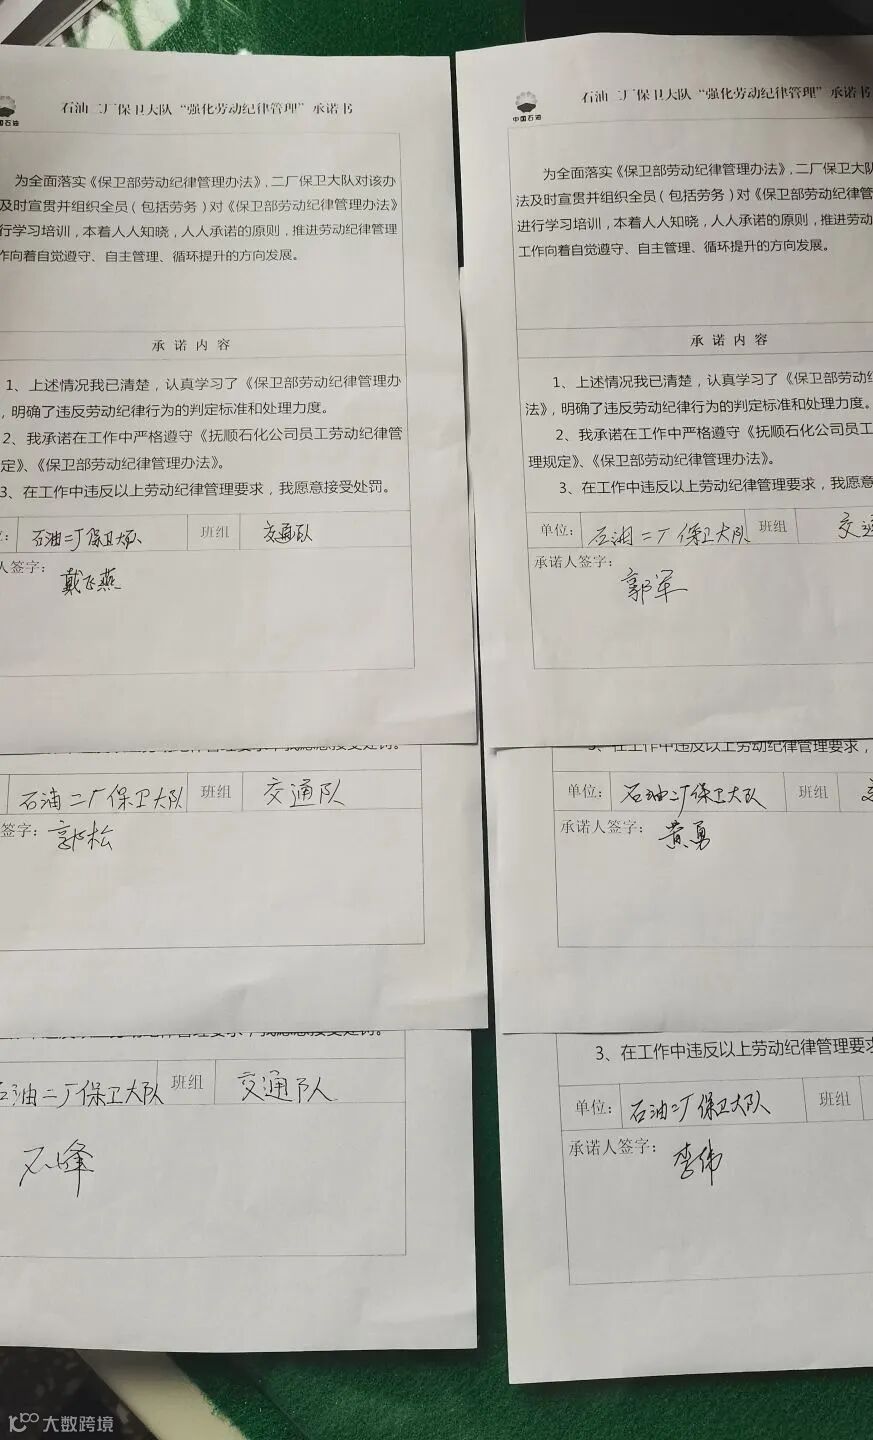 中国石油
石油二厂保卫大队“强化劳动纪律管理”承诺书
为全面落实《保卫部劳动纪律管理办法》,二厂保卫大队对该办
及时宣贯并组织全员（包括劳务）对《保卫部劳动纪律管理办法》
行学习培训，本着人人知晓，人人承诺的原则，推进劳动纪律管理
作向着自觉遵守、自主管理、循环提升的方向发展。
承 诺 内 容
1、上述情况我已清楚，认真学习了《保卫部劳动纪律管理办
，明确了违反劳动纪律行为的判定标准和处理力度。
2、我承诺在工作中严格遵守《抚顺石化公司员工劳动纪律管
定》、《保卫部劳动纪律管理办法》。
3、在工作中违反以上劳动纪律管理要求，我愿意接受处罚。
石油二厂保卫大队 班组 交通队
人签字：
戴飞燕
中国石油
石油二厂保卫大队“强化劳动纪律管理”承诺书
为全面落实《保卫部劳动纪律管理办法》,二厂保卫大队
法及时宣贯并组织全员（包括劳务）对《保卫部劳动纪律管
进行学习培训，本着人人知晓，人人承诺的原则，推进劳动
工作向着自觉遵守、自主管理、循环提升的方向发展。
承 诺 内 容
1、上述情况我已清楚，认真学习了《保卫部劳动纪
法》，明确了违反劳动纪律行为的判定标准和处理力度。
2、我承诺在工作中严格遵守《抚顺石化公司员工
理规定》、《保卫部劳动纪律管理办法》。
3、在工作中违反以上劳动纪律管理要求，我愿意
单位: 石油二厂保卫大队 班组 交通
承诺人签字：
郭军
石油二厂保卫大队 班组 交通队
签字：
3、在工作中违反以上劳动纪律管理要求，
单位: 石油二厂保卫大队 班组
承诺人签字：
黄勇
石油二厂保卫大队 班组 交通队
石峰
3、在工作中违反以上劳动纪律管理要求
单位: 石油二厂保卫大队 班组
承诺人签字：
李伟
大数跨境